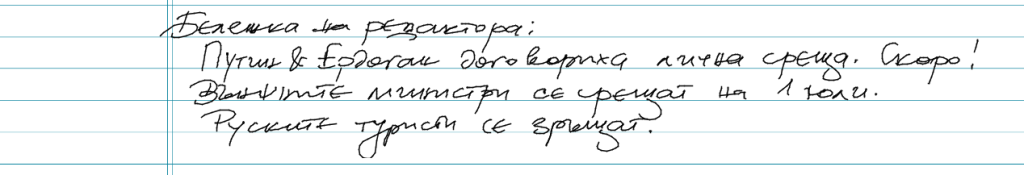 Бележка на редактора:
Путин & Ердоган договориха лична среща. Скоро!
Външните министри се срещат на 1 юли.
Руските туристи се връщат.